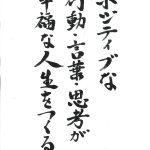 ポジティブな
行動・言葉・思考が
幸福な人生をつくる